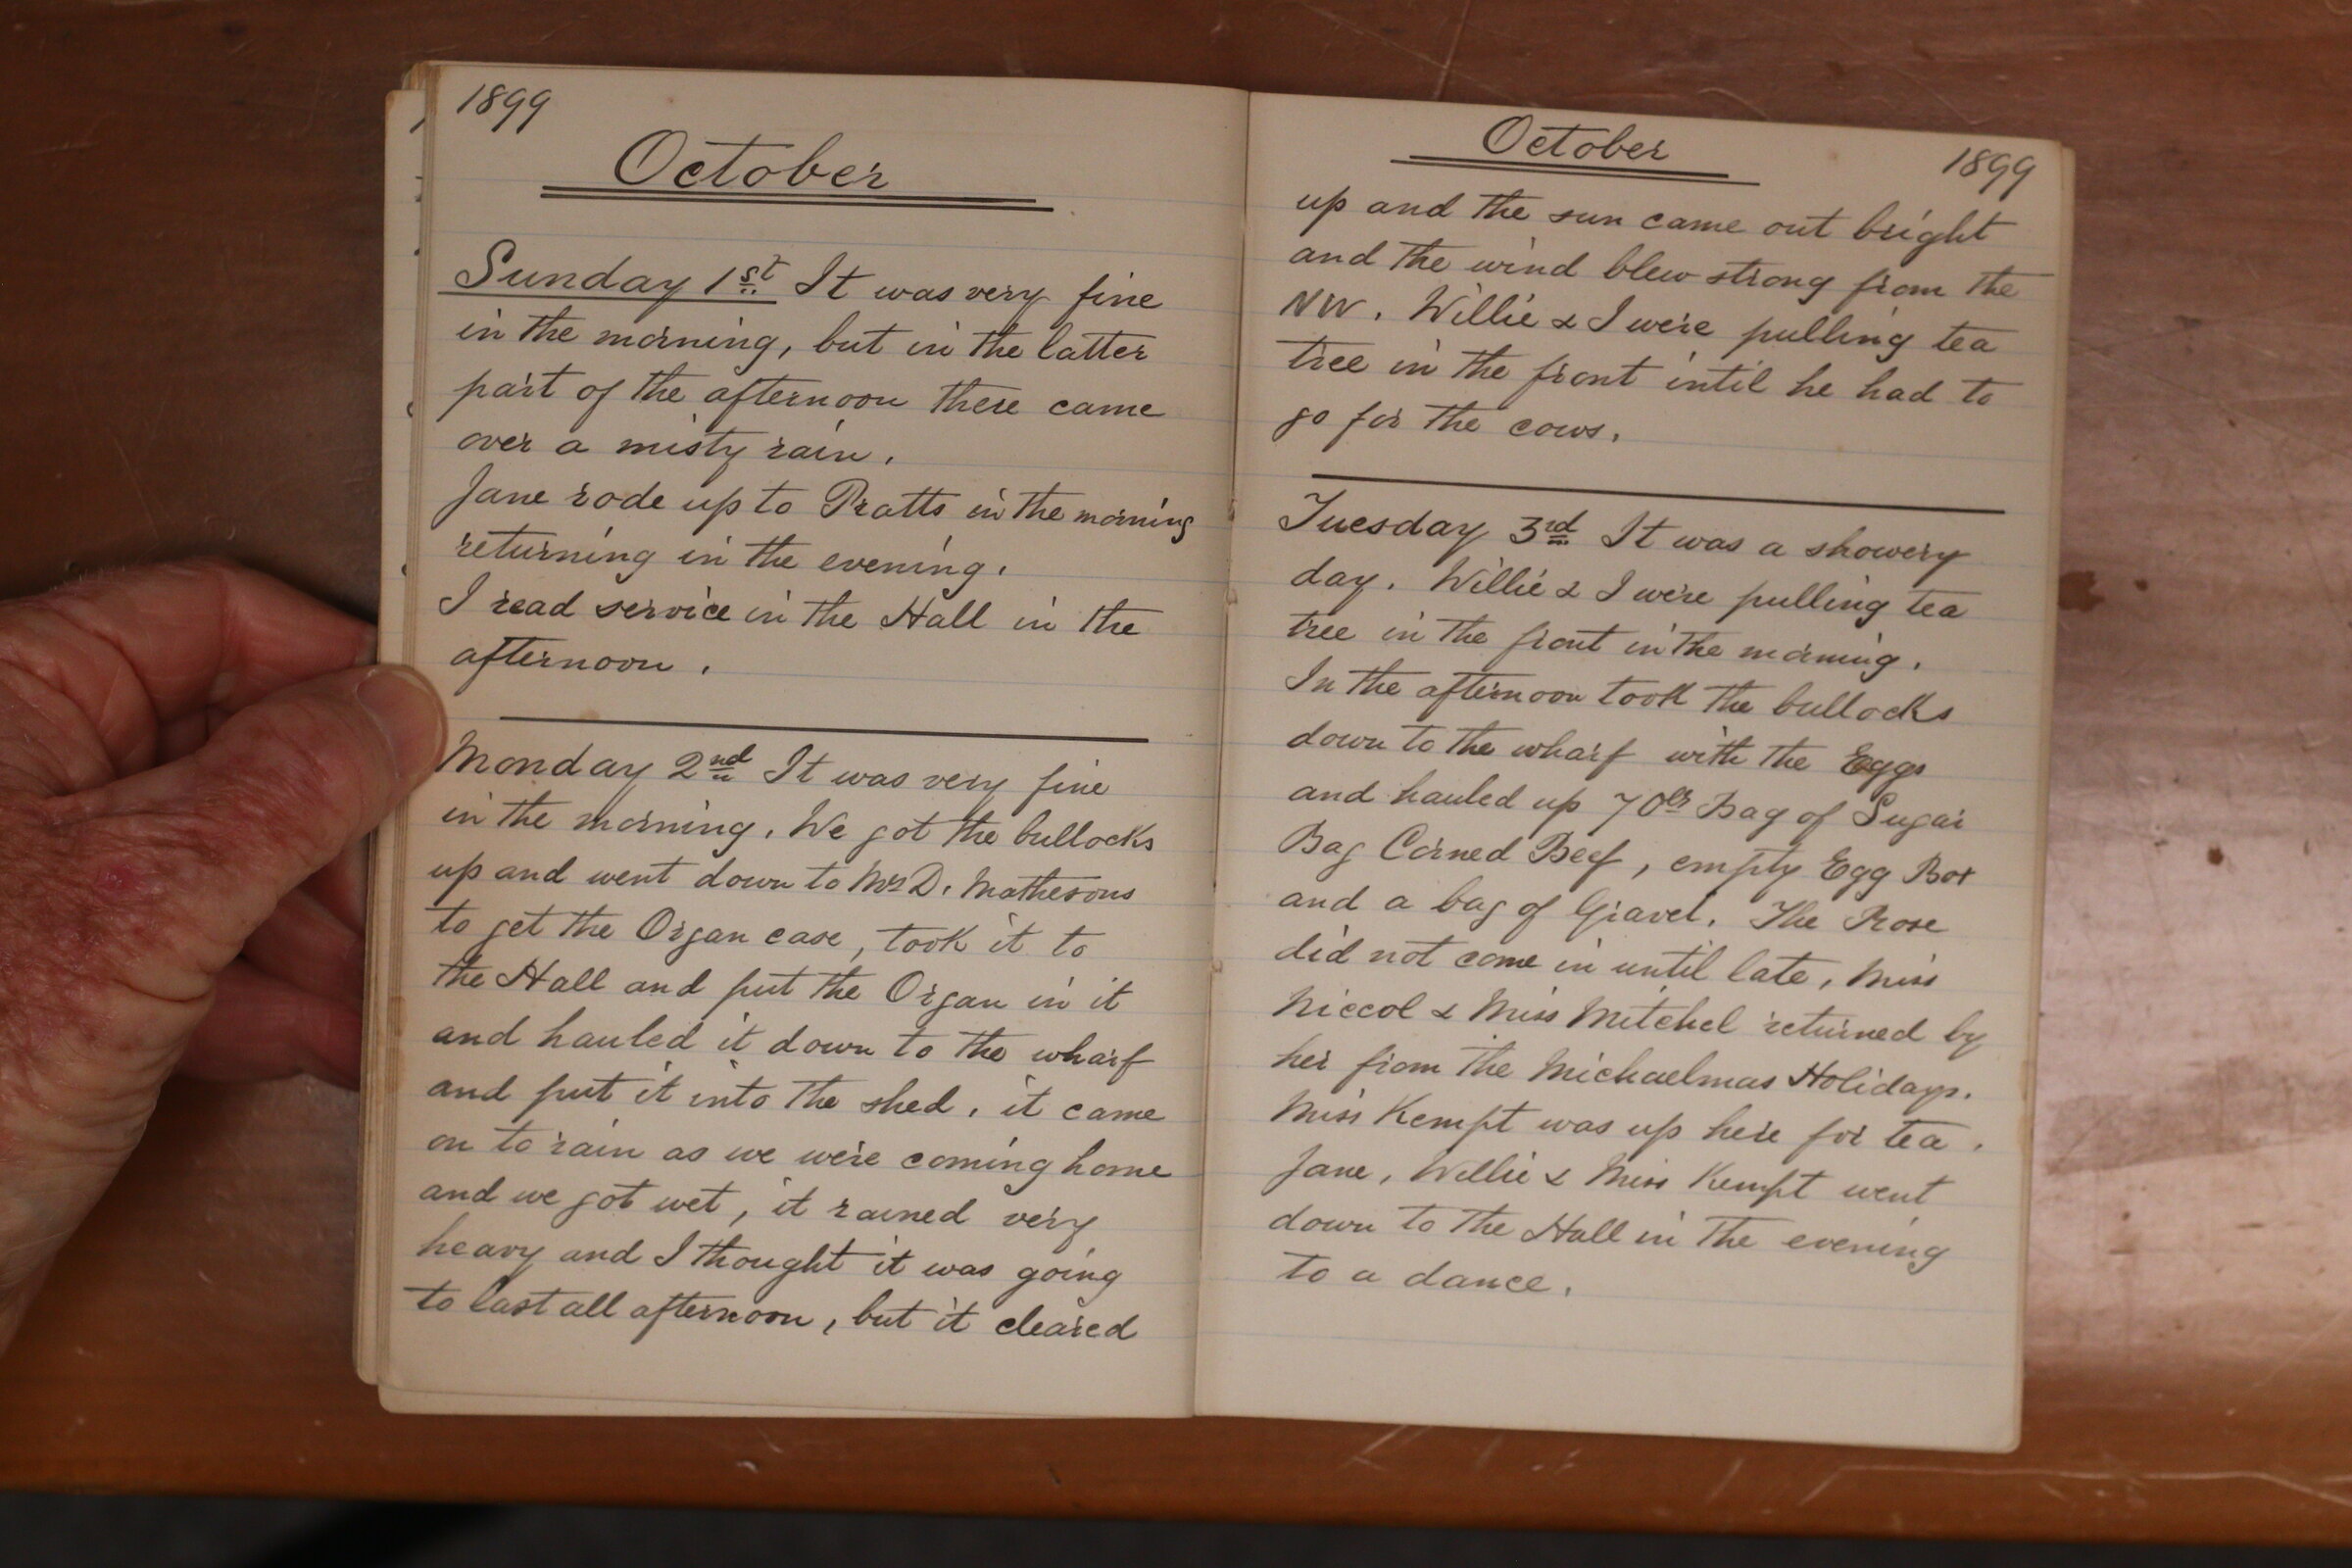 1899
October
Sunday 1st It was very fine
in the morning, but in the latter
part of the afternoon there came
over a misty rain.
Jane rode up to Pratts in the morning
returning in the evening.
I read service in the Hall in the
afternoon.
Monday 2nd It was very fine
in the morning. We got the bullocks
up and went down to Mr D. Mathesons
to get the Organ case, took it to
the Hall and put the Organ in it
and hauled it down to the wharf
and put it into the shed, it came
on to rain as we were coming home
and we got wet, it rained very
heavy and I thought it was going
to last all afternoon, but it cleared
October
1899
up and the sun came out bright
and the wind blew strong from the
NW. Willie & I were pulling tea
tree in the front intil he had to
go for the cows.
Tuesday 3rd It was a showery
day. Willie & I were pulling tea
tree in the front in the morning.
In the afternoon took the bullocks
down to the wharf with the Eggs
and hauled up 70lb Bag of Sugar
Bag Corned Beef, empty Egg Box
and a bag of Gravel. The Rose
did not come in until late, Miss
Niccol & Miss Mitchel returned by
her from the Michaelmas Holidays.
Miss Kempt was up here for tea.
Jane, Willie & Miss Kempt went
down to the Hall in the evening
to a dance.